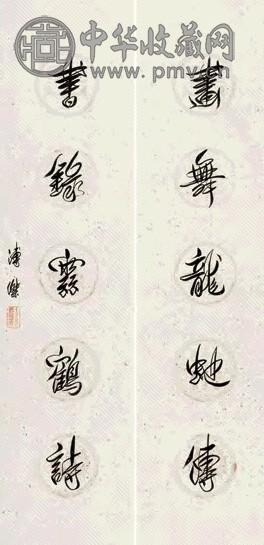 中华收藏网
www.pmv.cn
畫舞龍虵傳
書錄鶴詩
溥傑